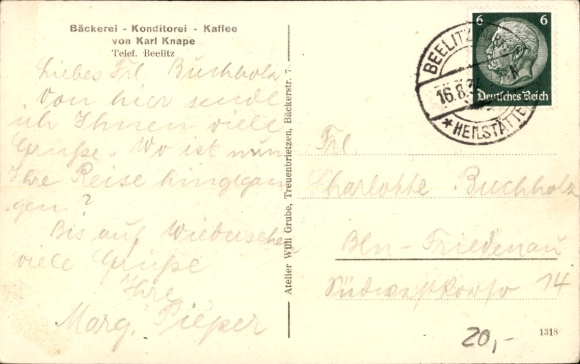 Bäckerei - Konditorei - Kaffee
von Karl Knape
Telef. Beelitz
Liebes Frl. Buchholz
Von hier sende
ich Ihnen viele
Grüße. Wo ist nun
Ihre Reise hingegan
gen?
Bis auf Wiedersehen
viele Grüße
Ihre
Marg. Pieper
Atelier Willi Grube, Treuenbrietzen, Bäckerstr. 7.
6 6
Deutsches Reich
BEELITZ
16.8.3
* HEILSTÄTTE
Frl
Charlotte Buchholz
Bln-Friedenau
Südwestkorso 14
1318
20,-